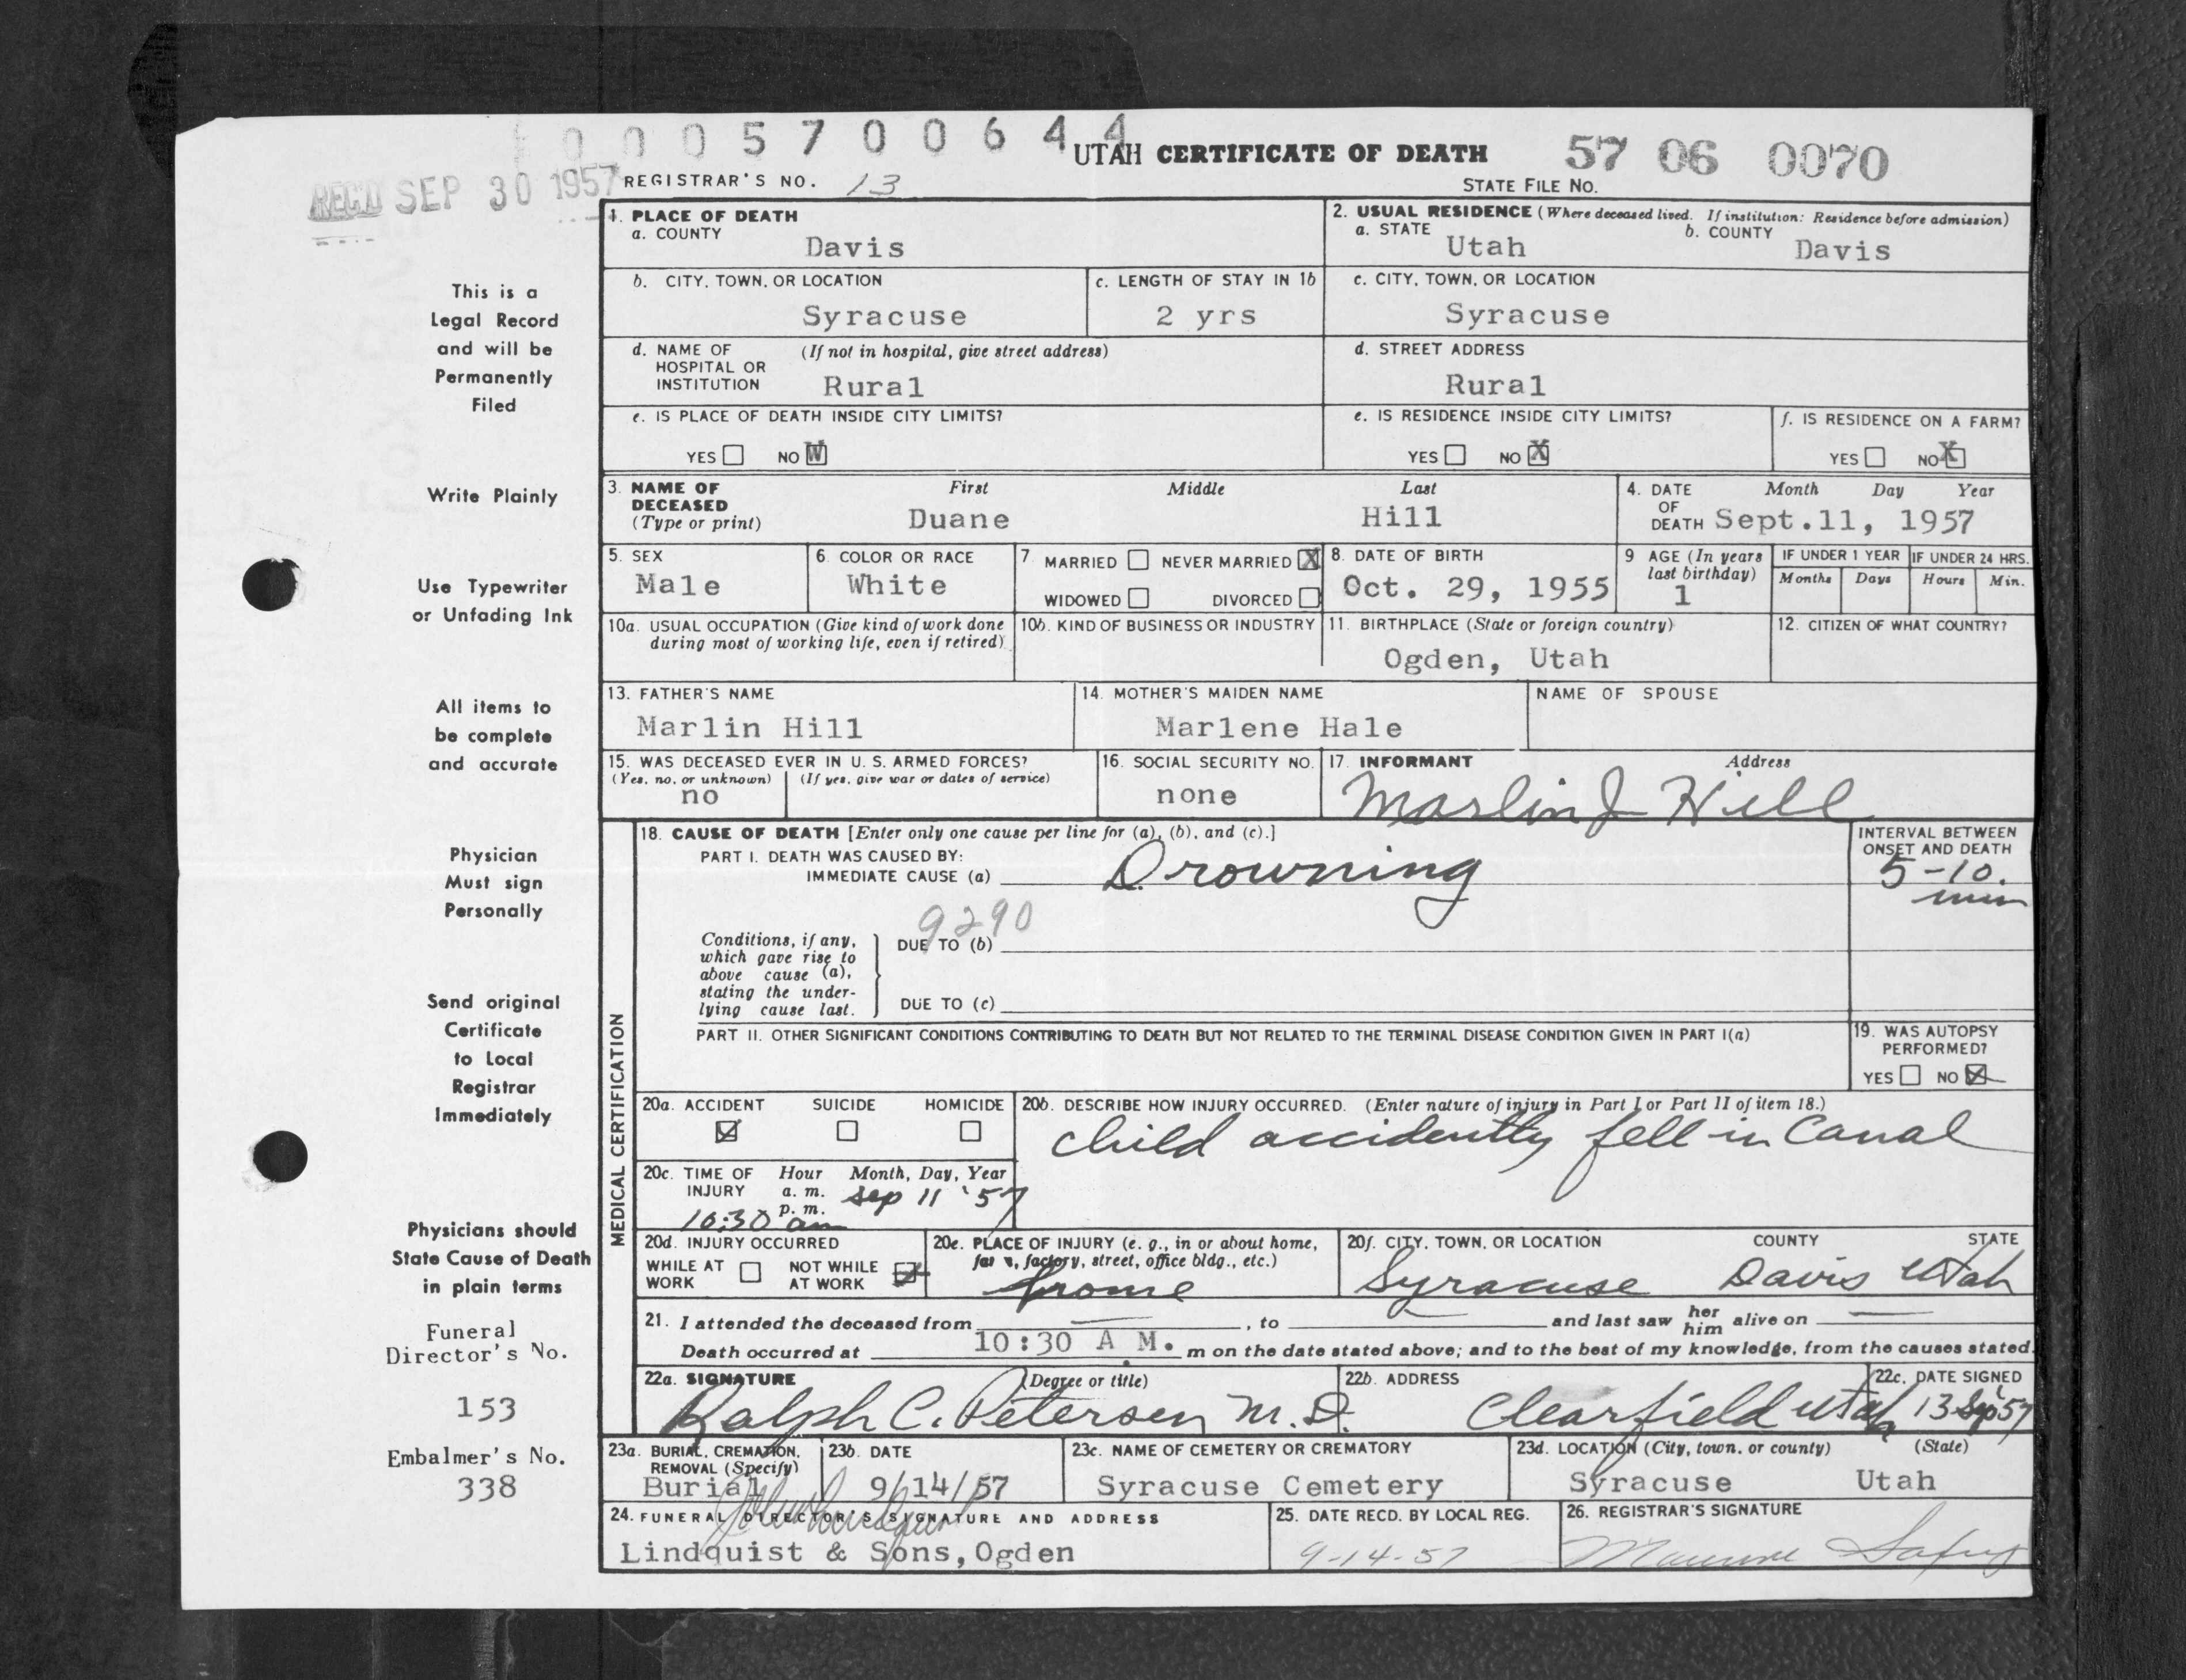 0 0 0 5 7 0 0 6 4 4
UTAH CERTIFICATE OF DEATH
57 06 0070
REC'D SEP 30 1957
REGISTRAR'S NO. 13
STATE FILE NO.
1. PLACE OF DEATH
a. COUNTY Davis
2. USUAL RESIDENCE (Where deceased lived. If institution: Residence before admission)
a. STATE Utah b. COUNTY Davis
b. CITY, TOWN, OR LOCATION Syracuse
c. LENGTH OF STAY IN 1b 2 yrs
c. CITY, TOWN, OR LOCATION Syracuse
d. NAME OF HOSPITAL OR INSTITUTION (If not in hospital, give street address) Rural
d. STREET ADDRESS Rural
e. IS PLACE OF DEATH INSIDE CITY LIMITS?
YES NO W
e. IS RESIDENCE INSIDE CITY LIMITS?
YES NO X
f. IS RESIDENCE ON A FARM?
YES NO X
3. NAME OF DECEASED (Type or print)
First Middle Last
Duane Hill
4. DATE OF DEATH Month Day Year
Sept.11, 1957
5. SEX Male
6. COLOR OR RACE White
7 MARRIED NEVER MARRIED X
WIDOWED DIVORCED
8. DATE OF BIRTH
Oct. 29, 1955
9 AGE (In years last birthday) 1
IF UNDER 1 YEAR IF UNDER 24 HRS.
Months Days Hours Min.
10a. USUAL OCCUPATION (Give kind of work done during most of working life, even if retired)
10b. KIND OF BUSINESS OR INDUSTRY
11. BIRTHPLACE (State or foreign country)
Ogden, Utah
12. CITIZEN OF WHAT COUNTRY?
13. FATHER'S NAME
Marlin Hill
14. MOTHER'S MAIDEN NAME
Marlene Hale
NAME OF SPOUSE
15. WAS DECEASED EVER IN U. S. ARMED FORCES?
(Yes, no, or unknown) (If yes, give war or dates of service)
no
16. SOCIAL SECURITY NO.
none
17. INFORMANT Address
Marlin J Hill
MEDICAL CERTIFICATION
18. CAUSE OF DEATH [Enter only one cause per line for (a), (b), and (c).]
PART I. DEATH WAS CAUSED BY:
IMMEDIATE CAUSE (a) Drowning
INTERVAL BETWEEN ONSET AND DEATH
5-10. min
9290
Conditions, if any, which gave rise to above cause (a), stating the underlying cause last.
DUE TO (b)
DUE TO (c)
PART II. OTHER SIGNIFICANT CONDITIONS CONTRIBUTING TO DEATH BUT NOT RELATED TO THE TERMINAL DISEASE CONDITION GIVEN IN PART I(a)
19. WAS AUTOPSY PERFORMED?
YES NO X
20a. ACCIDENT SUICIDE HOMICIDE
20b. DESCRIBE HOW INJURY OCCURRED. (Enter nature of injury in Part I or Part II of item 18.)
child accidently fell in Canal
20c. TIME OF INJURY Hour Month, Day, Year
a. m. Sep 11 '57
p. m.
10:30 am
20d. INJURY OCCURRED
WHILE AT WORK NOT WHILE AT WORK
20e. PLACE OF INJURY (e. g., in or about home, farm, factory, street, office bldg., etc.)
home
20f. CITY, TOWN, OR LOCATION COUNTY STATE
Syracuse Davis Utah
21. I attended the deceased from , to and last saw her him alive on
Death occurred at 10:30 A.M. m on the date stated above; and to the best of my knowledge, from the causes stated.
22a. SIGNATURE (Degree or title)
Ralph C. Petersen M.D.
22b. ADDRESS
Clearfield Utah
22c. DATE SIGNED
13 Sep '57
23a. BURIAL, CREMATION, REMOVAL (Specify)
Burial
23b. DATE
9/14/57
23c. NAME OF CEMETERY OR CREMATORY
Syracuse Cemetery
23d. LOCATION (City, town, or county) (State)
Syracuse Utah
24. FUNERAL DIRECTOR'S SIGNATURE AND ADDRESS
Lindquist & Sons, Ogden
25. DATE RECD. BY LOCAL REG.
9-14-57
26. REGISTRAR'S SIGNATURE
This is a
Legal Record
and will be
Permanently
Filed
Write Plainly
Use Typewriter
or Unfading Ink
All items to
be complete
and accurate
Physician
Must sign
Personally
Send original
Certificate
to Local
Registrar
Immediately
Physicians should
State Cause of Death
in plain terms
Funeral
Director's No.
153
Embalmer's No.
338